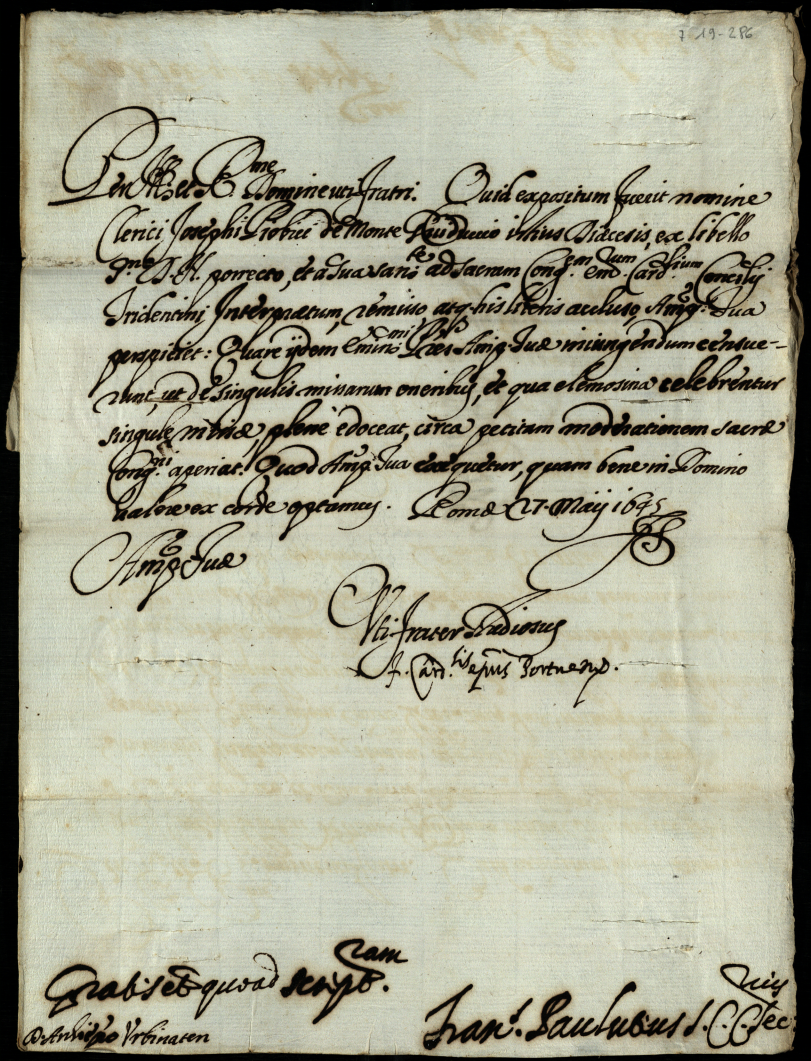 7 19-286
Per Ill. et R.me Domine uti frater. Quid expositum fuerit nomine
Clerici Josephi de Monte istius Diæcesis, ex libello
S.mo D. N. porrecto, et a Sua San.te ad sacram Cong.em Em.rum Card.lium Concilij
Tridentini Interpretum, remisso atq. his literis accluso Amp. Tua
perspiciet: Quare ijdem Emin.mi P.res Amp. Tuæ iniungendum censue-
runt, ut de singulis missarum oneribus, et qua elemosina celebrentur
singule missæ, plene edoceat, circa petitam moderationem sacræ
Cong.ni aperiat. Quod Amp. Tua exequetur, quam bene in Domino
valere ex corde optamus. Romæ 27. Maij 1645
Amp. Tuæ
Uti frater Studiosus
Card.lis epus Portuen.
Gratis et quoad script.ram
D. Archiepo Urbinaten
Fran.s Paulutius S. C. C. Sec.rius